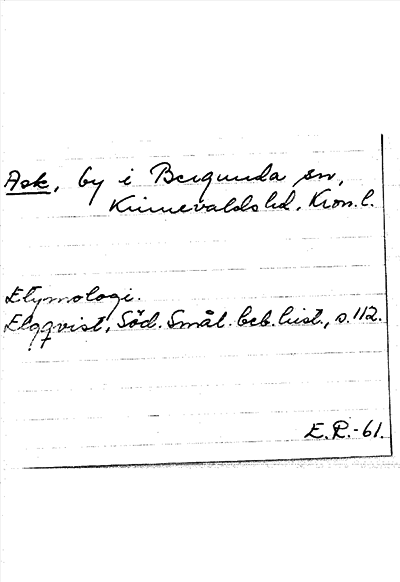 Ask, by i Bergunda sn,
Kinnevalds hd, Kron. l.
Etymologi.
Elgqvist, Söd. Smål. beb. hist., s. 112.
E.R.-61.